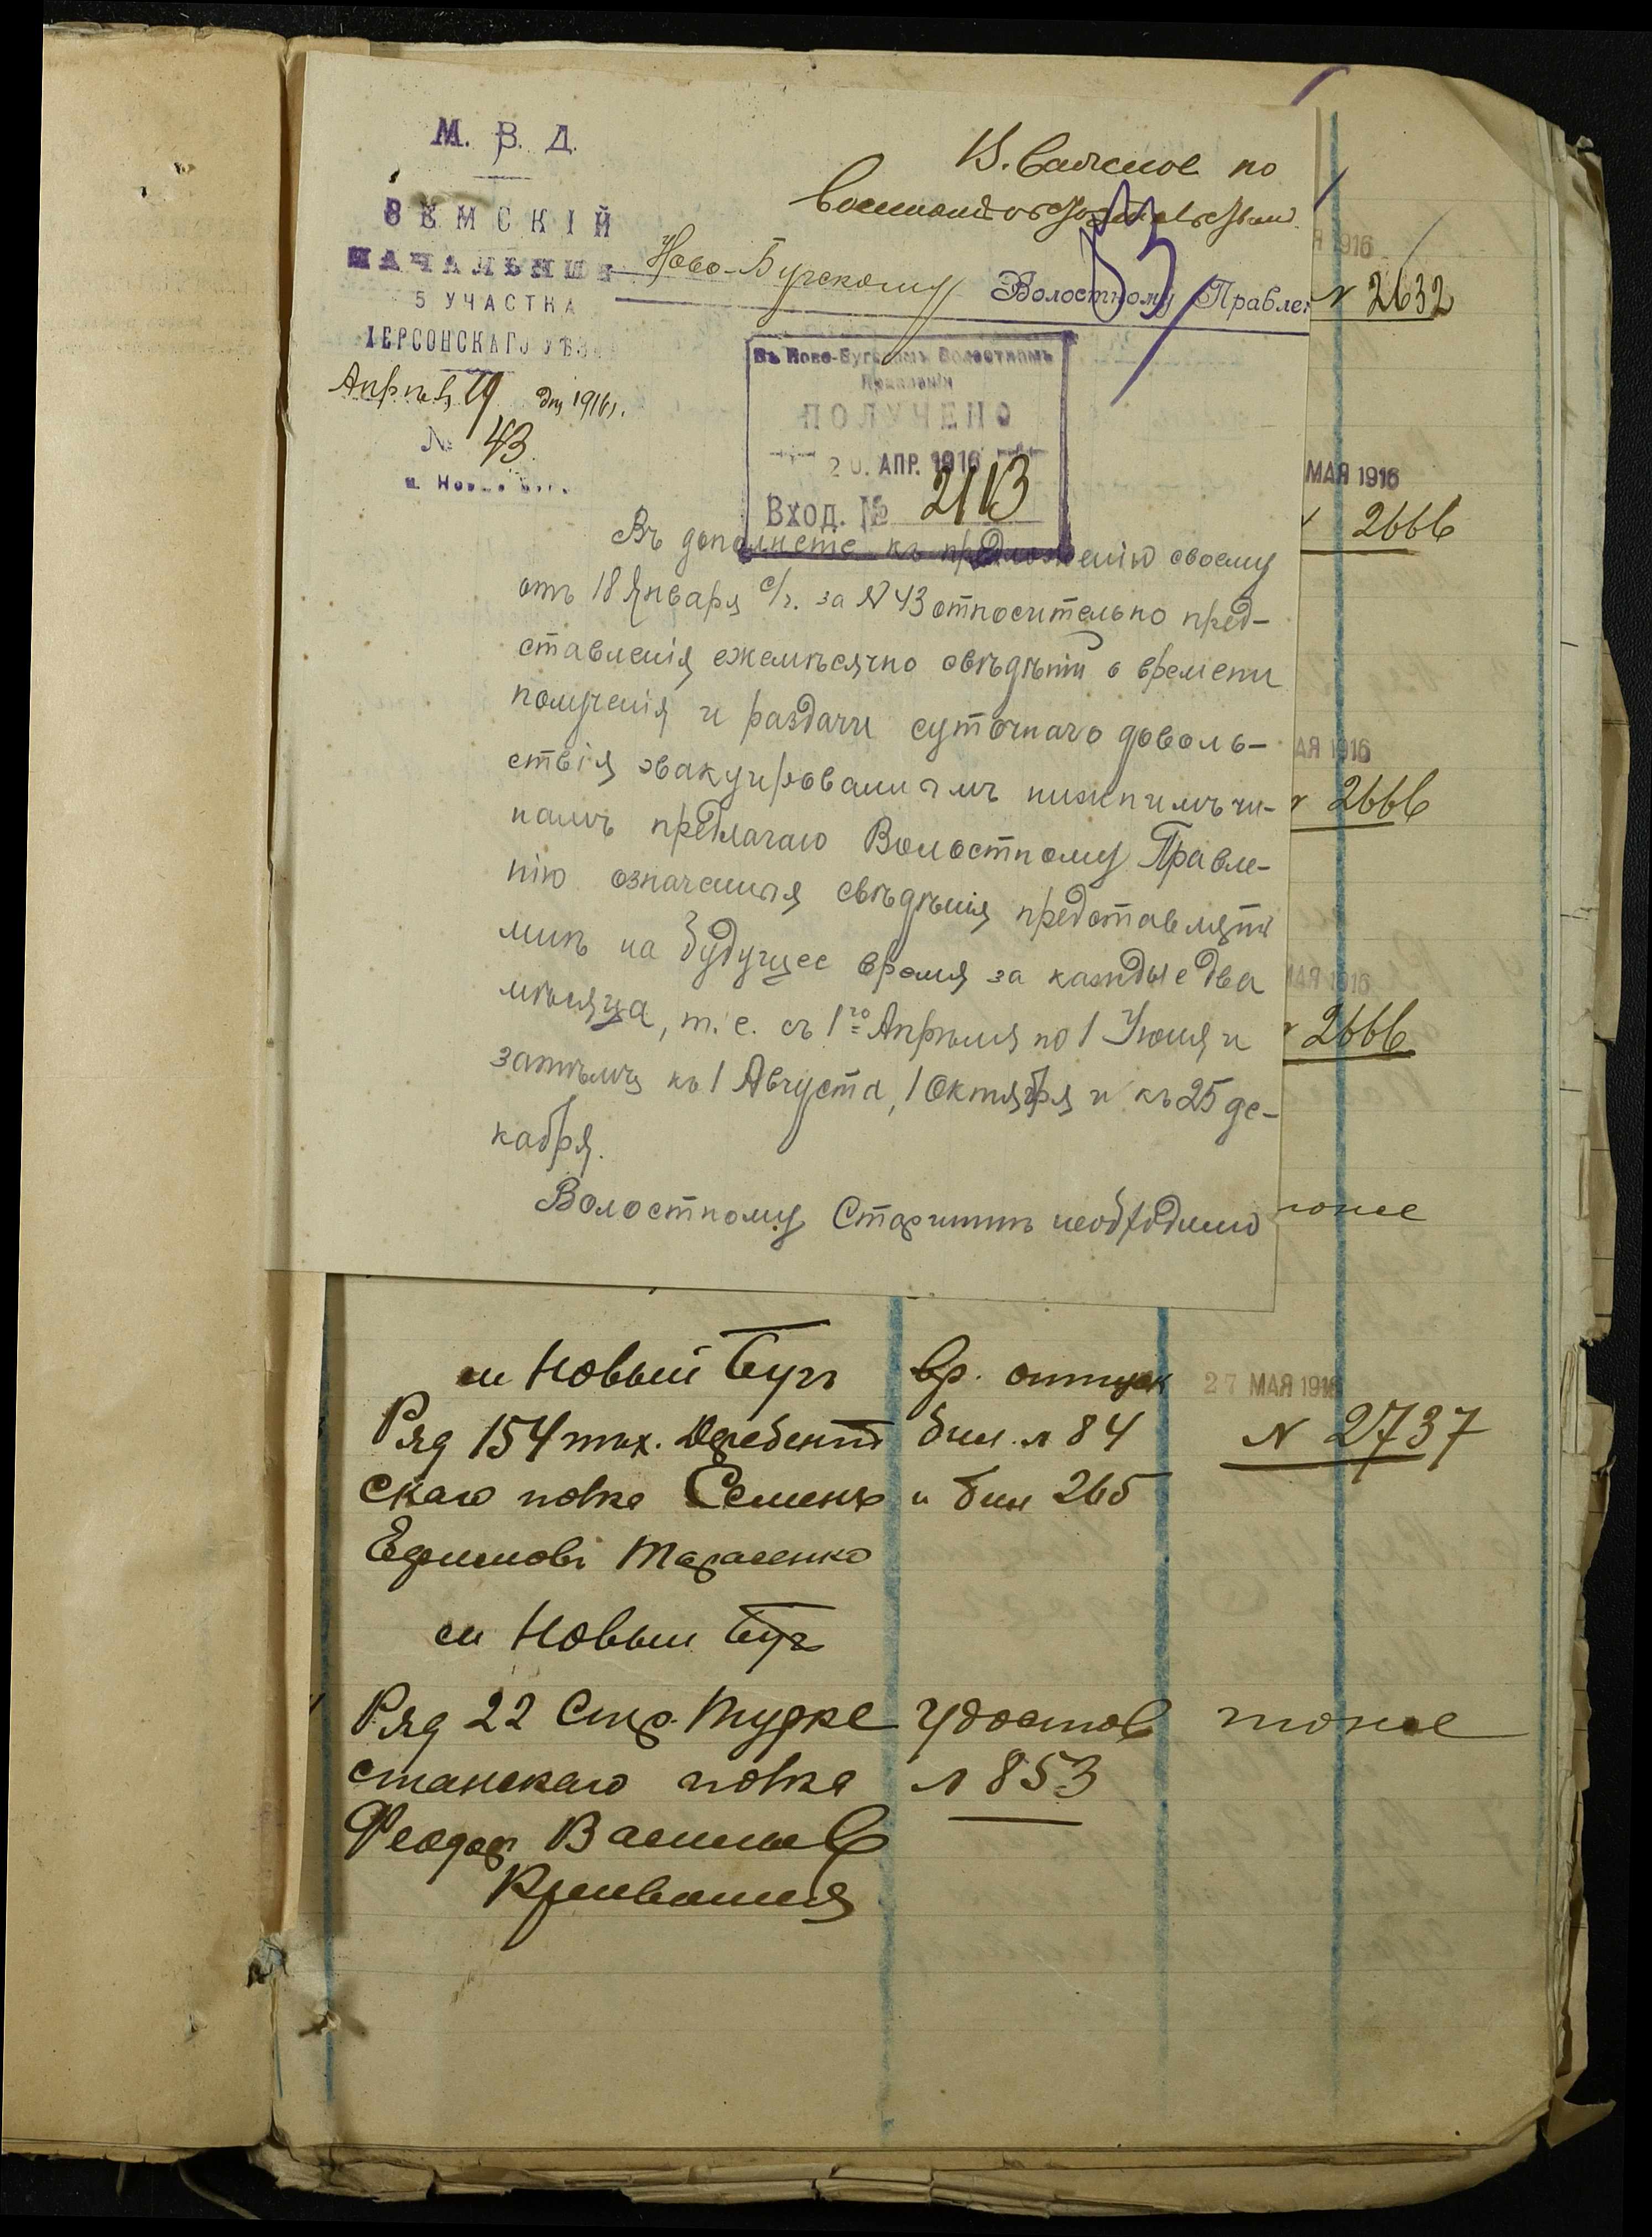 М. В. Д.
ЗЕМСКІЙ
НАЧАЛЬНИКЪ
5 УЧАСТКА
ХЕРСОНСКАГО УѢЗДА
Апрѣля 19 дня 1916 г.
№ 43.
В. Важное по
Ново-Бугскому Волостному Правлен
Въ Ново-Бугскомъ Волостномъ
Правленіи
ПОЛУЧЕНО
20. АПР. 1916
Вход. № 2113
Въ дополненіе къ предложенію своему
отъ 18 Января с/г. за № 43 относительно пред-
ставленія ежемѣсячно свѣдѣній о времени
полученія и раздачи суточнаго доволь-
ствія эвакуированнымъ нижнимъ чи-
намъ предлагаю Волостному Правле-
нію означенныя свѣдѣнія представлять
мнѣ на будущее время за каждые два
мѣсяца, т. е. съ 1го Апрѣля по 1 Іюня и
затѣмъ къ 1 Августа, 1 Октября и къ 25 де-
кабря.
Волостному Старшинѣ необходимо
1916
№ 2632
МАЯ 1916
2666
АЯ 1916
2666
МАЯ 1916
2666
тоже
м Новый Бугъ вр. отпуск 27 МАЯ 1916
Ряд 154 пѣх. Дербент бил. № 84 № 2737
скаго полка Семенъ и бил 265
Ефимовъ Тарасенко
м Новый Бугъ
Ряд 22 Стр. Турке Удостов тоже
станскаго полка № 853
Феодор Васильев